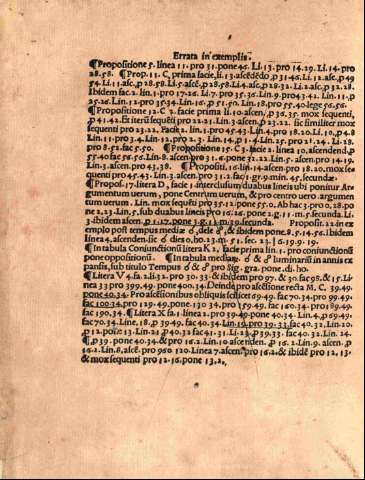 Errata in exemplis.
¶Propositione 5. linea 11. pro 31. pone 45. Li. 13. pro 14.29. Li. 14. pro
28.58. ¶Prop. 11. C, prima facie, li. 13 ascēdēdo
54. Li. 11. asc.
Ibidem fac 2. lin. 1. pro 17.26. Li. 7. pro 35.36. Lin. 9. pro 43.42. Lin. 11. p
25.26. Lin. 12. pro 35.34. Lin. 16. p 51.50. Lin. 18. pro 55.40 lege 56.56.
¶Propositione 12. C 2. facie prima li. 10. ascen, p 36.35. mox sequenti,
p 41.42. Et iterū sequēti pro 22.21. Lin. 3. ascen, p 23.22. sic similiter mox
sequenti pro 23.22. Facie 2. lin. 1. pro 45.43. Lin. 4. pro 18.20. Li. 10, p 4.8
Lin. 11. pro 3.4. Lin. 12. pro 2.3. Lin. 14. p 1.4. Lin. 25. pro 21.24. Li. 28.
pro 8.52. fac 5.50. ¶Propositione 15. C 3. facie 2. linea 10. ascendend, p
55.40 fac 56.56. Lin. 8. ascen. pro 31.6. pone 32.22. Lin. 5. ascen. pro 14.19.
Lin. 3. ascen. pro 43.38. ¶Propositi. 16. lin. 14. ascen pro 18.20. mox se-
quenti pro 45.43. Lin. 3. ascen. pro 31.2. fac 1. gr. 9. min. 45. secundæ.
¶Propos. 17. litera D, facie 1. interclusum duabus lineis ubi ponitur Ar-
gumentum uerum, pone Centrum uerum, & pro centro uero. argumen-
tum uerum. Lin. mox sequēti pro 35.12. pone 55.0. Ab hac 3. pro 0,28. po
ne 2.23. Lin. 5. sub duabus lineis pro 16.26. pone 2. g. 11. m. 5. secunda. Li.
3. ibidem ascen. p 1.12. pone 1. g. 11. m. 39. secunda. Proposit. 22. in ex-
emplo post tempus mediæ ☌, dele ☍, & ibidem pone. 8. 5.14.56. Ibidem
linea 24, ascenden. sic ☌ dies 0, ho. 23. m 51. sec 22. | 6.19.9.19.
¶In tabula Coniunctionū litera K 2, facie prima lin. 1. pro coniunctionū
pone oppositionū. ¶In tabula mediarū ☌ & ☍ luminariū in annis ex
pansis, sub titulo Tempus ☌ & ☍ pro Sig. gra. pone. di. ho.
¶Litera V 4. fa. 2. li. 12. pro 30.33. & ibidem pro 97. & 30. fac 98. & 15. Li-
nea 33 pro 399.49. pone 400.34. Deinde pro ascēsione recta M. C. 39.49.
pone 40.34. Pro ascēsionibus obliquis
fac 100.34. pro 129.49. pone 130 34. pro 159.49. fac 160.34. pro 189.49.
fac 190.34. ¶Litera X fa. 1. linea 2. pro 39.49. pone 40.34. Lin. 4. p 69.49.
fac 70.34. Line. 18. p 39.49. fac 40.34. Lin. 19. pro 39.33. fac 40.32. Lin. 20.
p 12. pone 13. Lin. 21. p 40.32 fac 41.31. Li. 23. p 39.33. fac 40.32. Lin. 24.
¶, p 39. pone 40.34. & pro 16.2. Lin. 10 ascenden. p 16.2. Lin. 9. ascen. p
16.2. Lin. 8. ascē. pro 960 120. Linea 7. ascen. pro 16.2. & ibidē pro 12, 13.
& mox sequenti pro 12.16. pone 13.2.